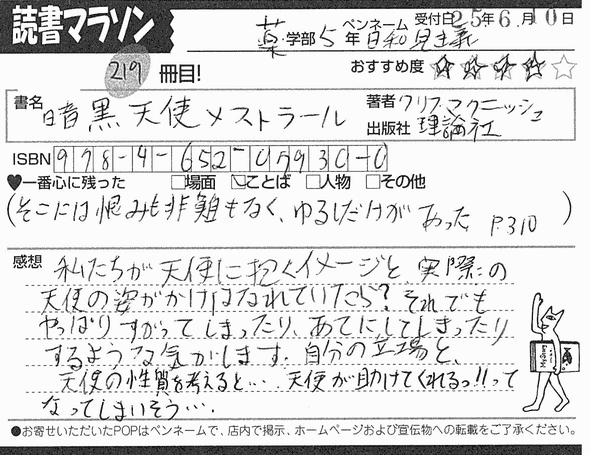 読書マラソン
ペンネーム 受付日25年6月10日
薬・学部5年 日和見主義
219 冊目!
おすすめ度 ★★★★☆
書名 暗黒天使メストラール
著者 クリフ・マクニッシュ
出版社 理論社
ISBN 978-4-652-07930-0
♥一番心に残った □場面 ☑ことば □人物 □その他
(そこには恨みも非難もなく、ゆるしだけがあった P310)
感想 私たちが天使に抱くイメージと実際の
天使の姿がかけはなれていたら?それでも
やっぱりすがってしまったり、あてにしてしまったり
するような気がします。自分の立場と、
天使の性質を考えると… 天使が助けてくれるっ!!って
なってしまいそう…。
●お寄せいただいたPOPはペンネームで、店内で掲示、ホームページおよび宣伝物への転載をご了承ください。